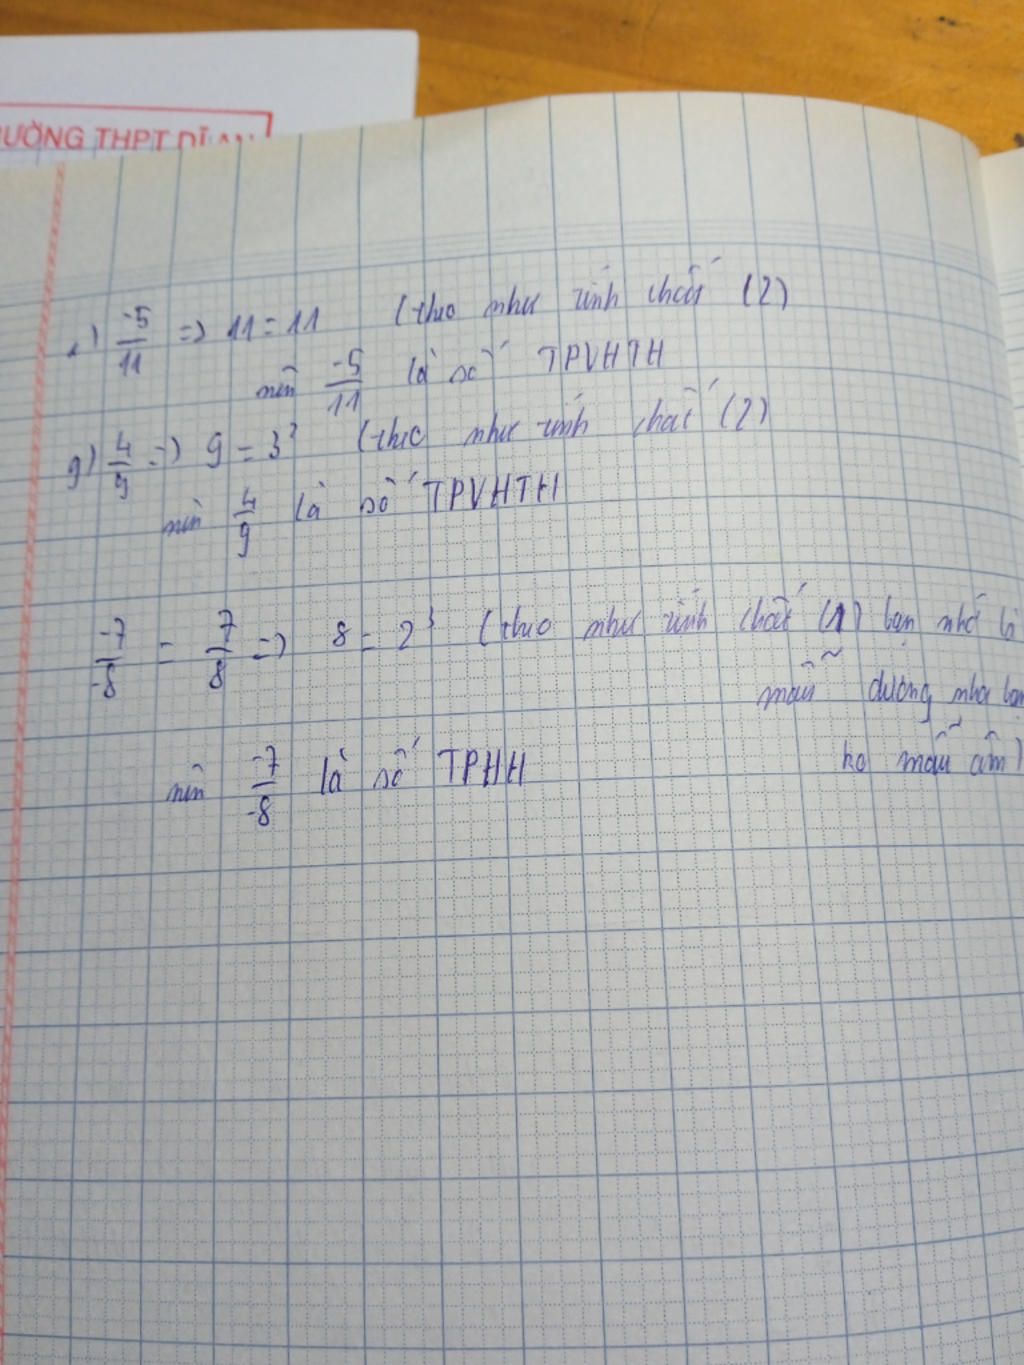 ƯỜNG THPT DĨ AN
) -5/11 => 11 = 11 (theo như tính chất (2)
nên -5/11 là số TPVHTH
g) 4/9 => 9 = 3² (theo như tính chất (2)
nên 4/9 là số TPVHTH
-7/-8 = 7/8 => 8 = 2³ (theo như tính chất (1) bạn nhớ là
mẫu dương nha bạn
nên -7/-8 là số TPHH ko mẫu âm)